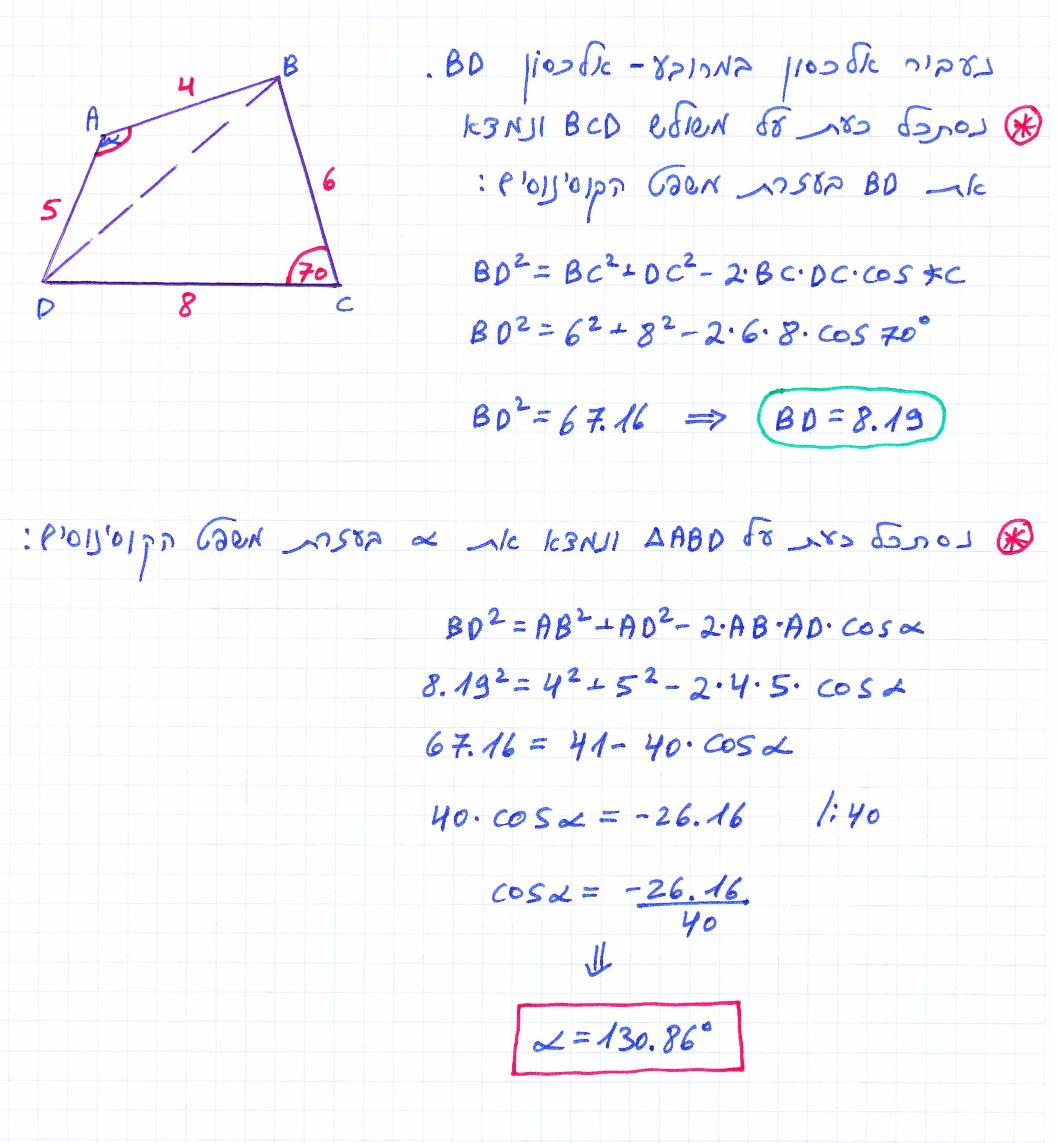 נעביר אלכסון במרובע - אלכסון BD.
נסתכל כעת על משולש BCD ונמצא
את BD בעזרת משפט הקוסינוסים:
A
B
C
D
4
5
6
8
70
α
BD² = BC² + DC² - 2·BC·DC·cos∢C
BD² = 6² + 8² - 2·6·8·cos 70°
BD² = 67.16 ⇒ BD = 8.19
נסתכל כעת על ΔABD ונמצא את α בעזרת משפט הקוסינוסים:
BD² = AB² + AD² - 2·AB·AD·cosα
8.19² = 4² + 5² - 2·4·5·cosα
67.16 = 41 - 40·cosα
40·cosα = -26.16 /:40
cosα = -26.16
40
⇓
α = 130.86°